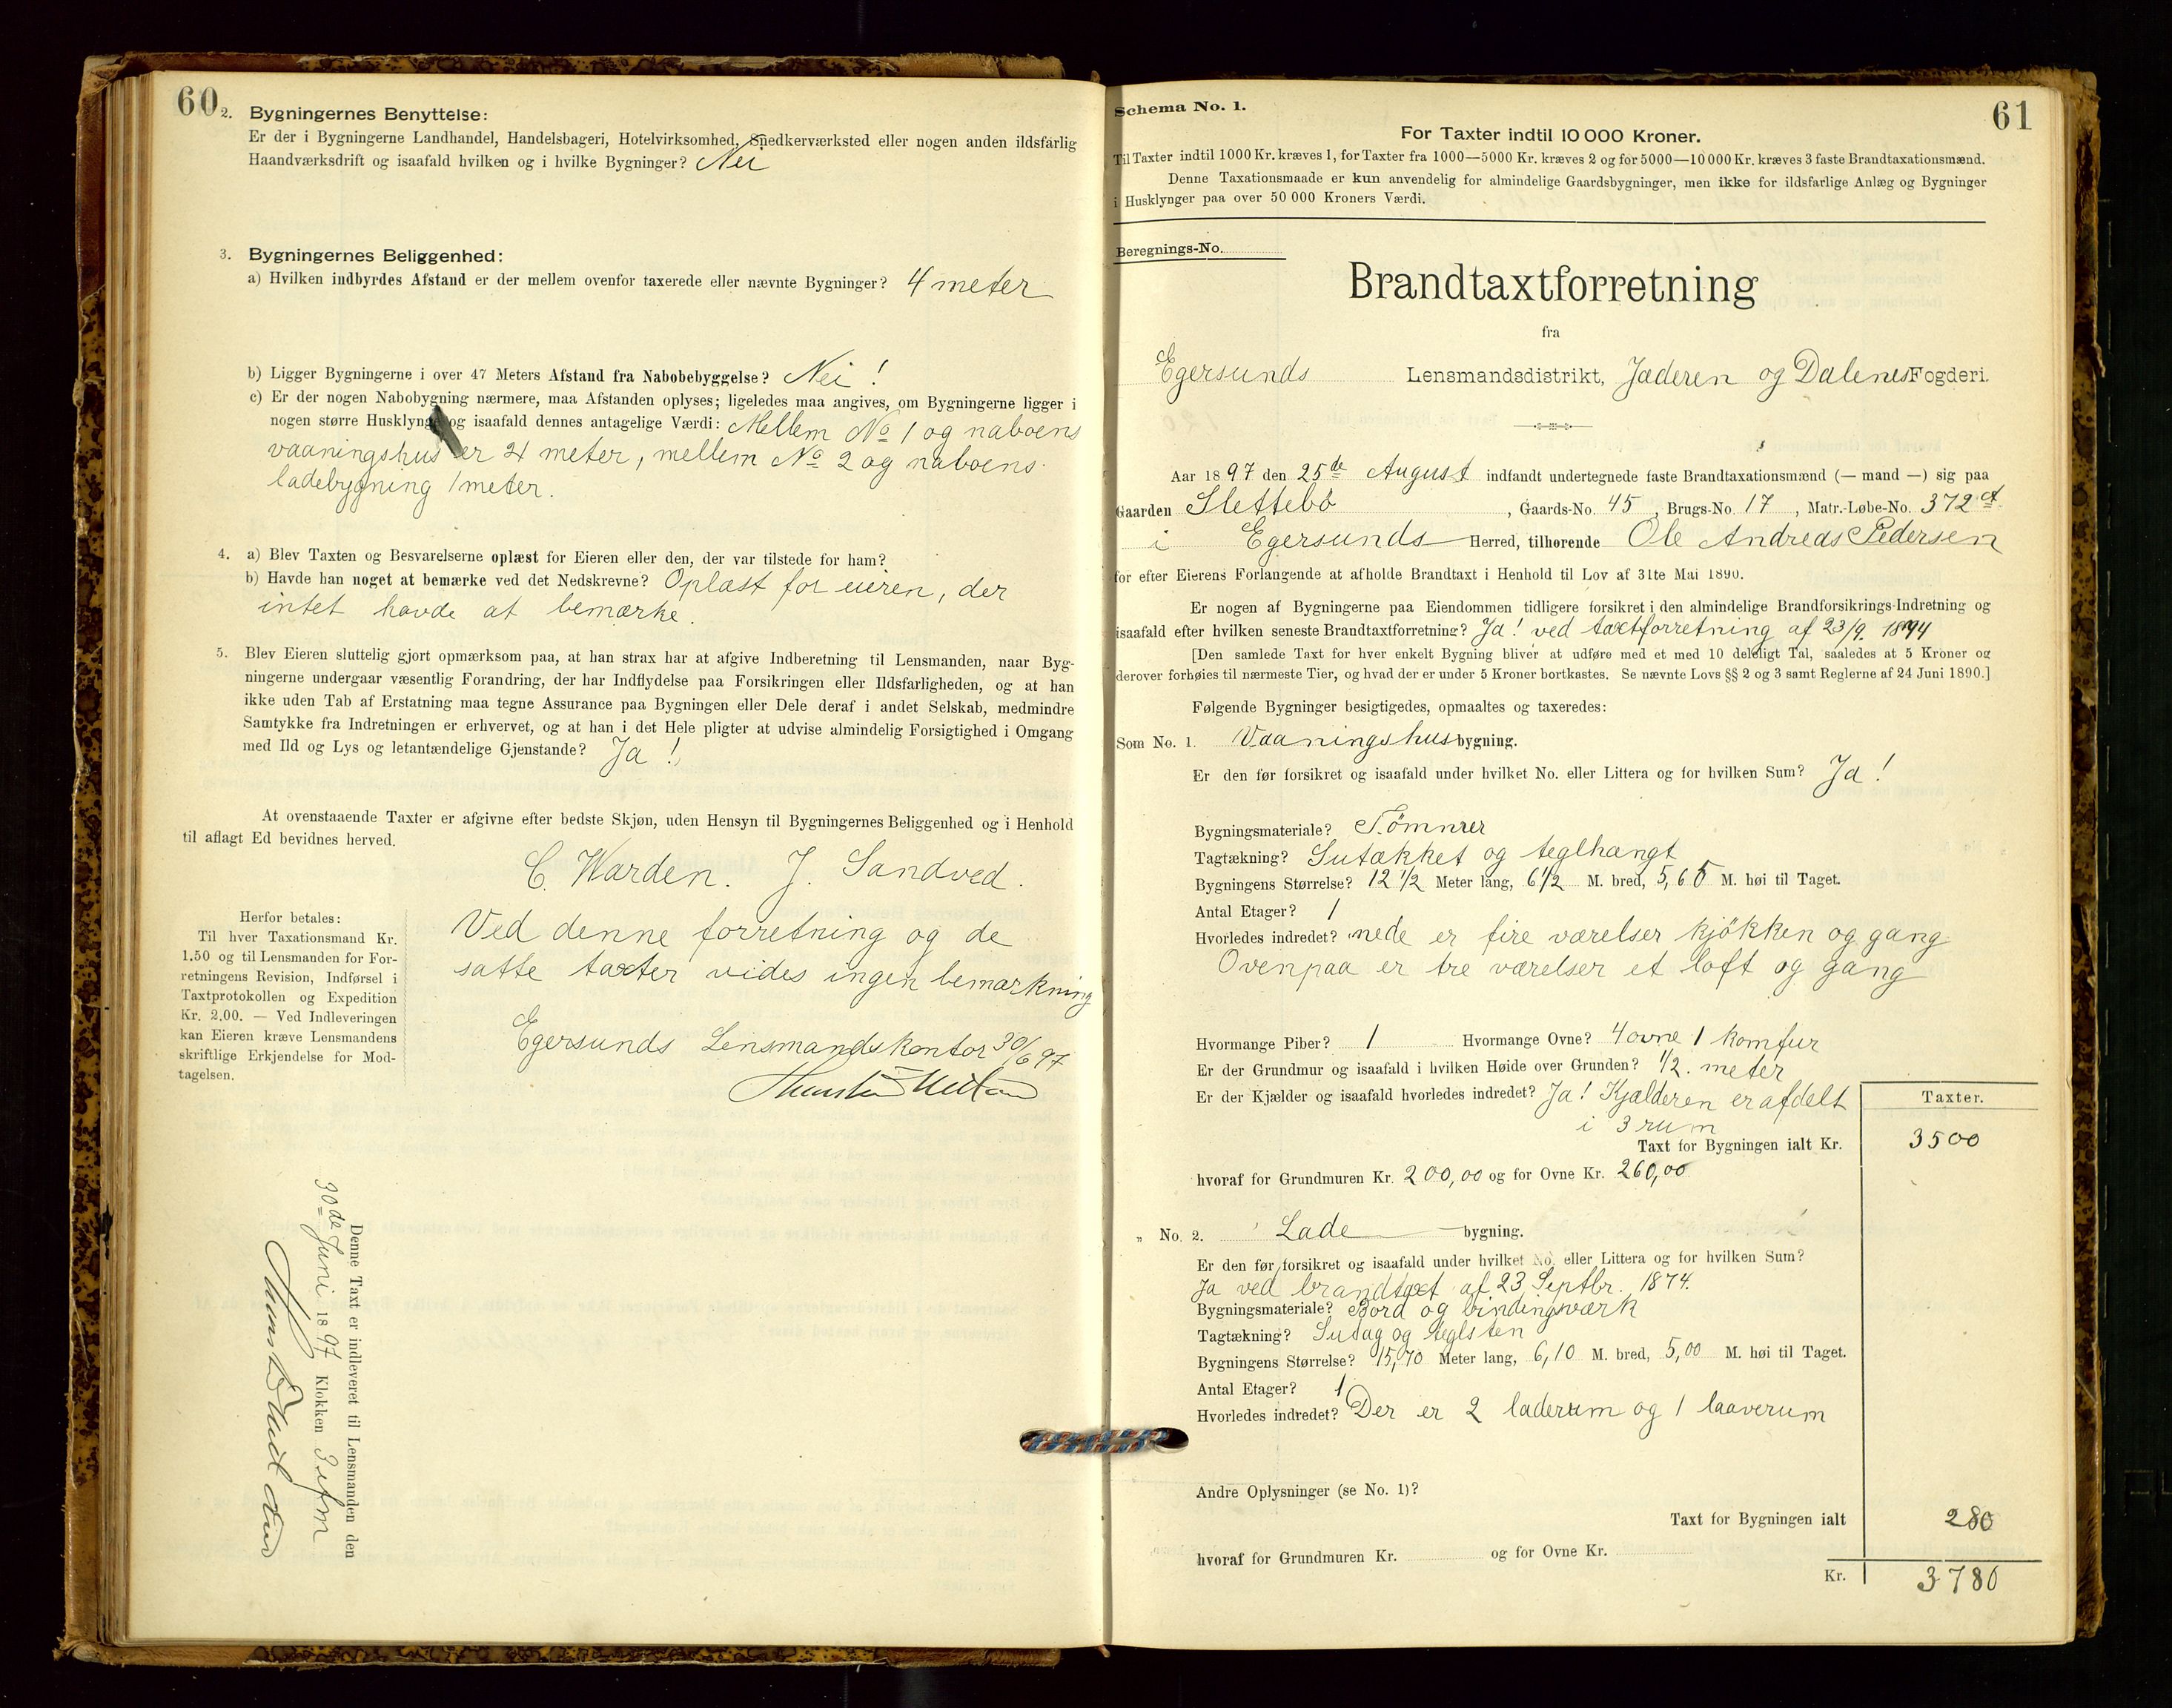 60
2. Bygningernes Benyttelse:
Er der i Bygningerne Landhandel, Handelsbageri, Hotelvirksomhed, Snedkerværksted eller nogen anden ildsfarlig
Haandværksdrift og isaafald hvilken og i hvilke Bygninger? Nei
3. Bygningernes Beliggenhed:
a) Hvilken indbyrdes Afstand er der mellem ovenfor taxerede eller nævnte Bygninger? 4 meter
b) Ligger Bygningerne i over 47 Meters Afstand fra Nabobebyggelse? Nei!
c) Er der nogen Nabobygning nærmere, maa Afstanden oplyses; ligeledes maa angives, om Bygningerne ligger i
nogen større Husklynge og isaafald dennes antagelige Værdi: Mellem No 1 og naboens
vaaningshus er 4 meter, mellem No 2 og naboens
ladebygning 1 meter.
4. a) Blev Taxten og Besvarelserne oplæst for Eieren eller den, der var tilstede for ham?
b) Havde han noget at bemærke ved det Nedskrevne? Oplæst for eieren, der
intet havde at bemærke.
5. Blev Eieren sluttelig gjort opmærksom paa, at han strax har at afgive Indberetning til Lensmanden, naar Byg-
ningerne undergaar væsentlig Forandring, der har Indflydelse paa Forsikringen eller Ildsfarligheden, og at han
ikke uden Tab af Erstatning maa tegne Assurance paa Bygningen eller Dele deraf i andet Selskab, medmindre
Samtykke fra Indretningen er erhvervet, og at han i det Hele pligter at udvise almindelig Forsigtighed i Omgang
med Ild og Lys og letantændelige Gjenstande? Ja!
At ovenstaaende Taxter er afgivne efter bedste Skjøn, uden Hensyn til Bygningernes Beliggenhed og i Henhold
til aflagt Ed bevidnes herved.
C. Warden. J. Sandved.
Herfor betales:
Til hver Taxationsmand Kr.
1.50 og til Lensmanden for For-
retningens Revision, Indførsel i
Taxtprotokollen og Expedition
Kr. 2.00. — Ved Indleveringen
kan Eieren kræve Lensmandens
skriftlige Erkjendelse for Mod-
tagelsen.
Ved denne forretning og de
satte taxter vides ingen bemærkning
Egersunds Lensmandskontor 30/6 97
Denne Taxt er indleveret til Lensmanden den
30de Juni 1897 Klokken 3 efm
61
Schema No. 1.
For Taxter indtil 10 000 Kroner.
Til Taxter indtil 1000 Kr. kræves 1, for Taxter fra 1000—5000 Kr. kræves 2 og for 5000—10 000 Kr. kræves 3 faste Brandtaxationsmænd.
Denne Taxationsmaade er kun anvendelig for almindelige Gaardsbygninger, men ikke for ildsfarlige Anlæg og Bygninger
i Husklynger paa over 50 000 Kroners Værdi.
Beregnings-No.
Brandtaxtforretning
fra
Egersunds Lensmandsdistrikt, Jæderen og Dalenes Fogderi.
Aar 1897 den 25de August indfandt undertegnede faste Brandtaxationsmænd (— mand —) sig paa
Gaarden Slettebö, Gaards-No. 45, Brugs-No. 17, Matr.-Løbe-No. 372 ct
i Egersunds Herred, tilhørende Ole Andreas Pedersen
for efter Eierens Forlangende at afholde Brandtaxt i Henhold til Lov af 31te Mai 1890.
Er nogen af Bygningerne paa Eiendommen tidligere forsikret i den almindelige Brandforsikrings-Indretning og
isaafald efter hvilken seneste Brandtaxtforretning? Ja! ved taxtforretning af 23/9. 1874
[Den samlede Taxt for hver enkelt Bygning bliver at udføre med et med 10 deleligt Tal, saaledes at 5 Kroner og
derover forhøies til nærmeste Tier, og hvad der er under 5 Kroner bortkastes. Se nævnte Lovs §§ 2 og 3 samt Reglerne af 24 Juni 1890.]
Følgende Bygninger besigtigedes, opmaaltes og taxeredes:
Som No. 1. Vaaningshusbygning.
Er den før forsikret og isaafald under hvilket No. eller Littera og for hvilken Sum? Ja!
Bygningsmateriale? Tömmer
Tagtækning? Sutækket og teglhængt
Bygningens Størrelse? 12 1/2 Meter lang, 6 1/2 M. bred, 5,65 M. høi til Taget.
Antal Etager? 1
Hvorledes indredet? nede er fire værelser kjökken og gang
Ovenpaa er tre værelser et loft og gang
Hvormange Piber? 1 Hvormange Ovne? 4 ovne 1 komfur
Er der Grundmur og isaafald i hvilken Høide over Grunden? 1/2. meter
Er der Kjælder og isaafald hvorledes indredet? Ja! Kjælderen er afdelt
i 3 rum
Taxter.
Taxt for Bygningen ialt Kr. 3500
hvoraf for Grundmuren Kr. 200,00 og for Ovne Kr. 260,00
„ No. 2. Lade bygning.
Er den før forsikret og isaafald under hvilket No. eller Littera og for hvilken Sum?
Ja ved brandtaxt af 23 Septbr. 1874.
Bygningsmateriale? Bord og bindingsværk
Tagtækning? Sutag og teglsten
Bygningens Størrelse? 15,70 Meter lang, 6,10 M. bred, 5,00 M. høi til Taget.
Antal Etager? 1
Hvorledes indredet? Der er 2 laderum og 1 laaverum
Andre Oplysninger (se No. 1)?
Taxt for Bygningen ialt 280
hvoraf for Grundmuren Kr. og for Ovne Kr.
Kr. 3780